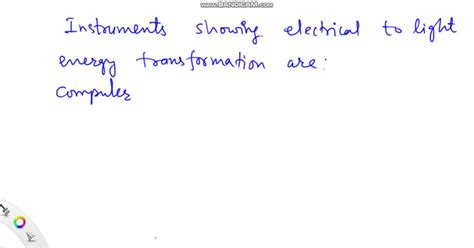 www.BANDICAM.com
Instruments showing electrical to light
energy transformation are:
Computer